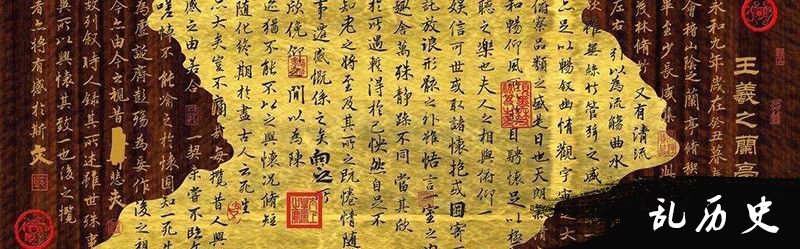 王羲之蘭亭
永和九年歲在癸丑暮
山陰之蘭亭脩禊
畢至少長咸
茂林脩竹
又有清流
左右
引以為流觴曲水
雖無絲竹管弦之盛
上足以暢敘幽情觀宇宙之大
和暢仰
俯察品類之盛是日也天朗
娛信可
騁懷足以極
聽之樂也夫人之相與俯仰一
世或取諸懷抱或因寄
託放浪形骸之外雖悟言室之
趣舍萬殊靜躁不同當其欣
於所遇輒得於己怏然自足不
知老之將至及其所之既惓情隨
事遷感慨係之矣向之
欣俛仰之間以為陳
迹猶不能不以之興懷況脩短
隨化終期於盡古人云死生
大矣豈不痛哉每攬昔人興
感之由若合一契未嘗不臨文
嗟悼不能喻之於懷固知一死生
為虛誕齊彭殤為妄作後之視
今之由今之視昔悲夫
故列叙時人錄其所述雖世殊事
異所以興懷其致一也後之攬
者上將有感於斯文
乱历史